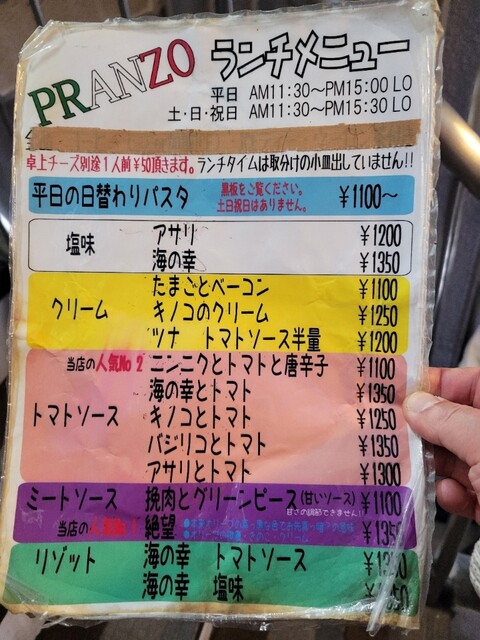 PRANZO ランチメニュー
平日 AM11:30～PM15:00 LO
土・日・祝日 AM11:30～PM15:30 LO
卓上チーズ別途1人前¥50頂きます。ランチタイムは取分けの小皿出していません!!
平日の日替わりパスタ 黒板をご覧ください。 ¥1100～
土日祝日はありません。
塩味 アサリ ¥1200
海の幸 ¥1350
クリーム たまごとベーコン ¥1100
キノコのクリーム ¥1250
ツナ トマトソース半量 ¥1200
当店の人気No2 ニンニクとトマトと唐辛子 ¥1100
海の幸とトマト ¥1350
トマトソース キノコとトマト ¥1250
バジリコとトマト ¥1350
アサリとトマト ¥1300
ミートソース 挽肉とグリーンピース(甘いソース) ¥1100
甘さの調節できません!!
当店の人気 絶望 ¥135
リゾット 海の幸 トマトソース
海の幸 塩味